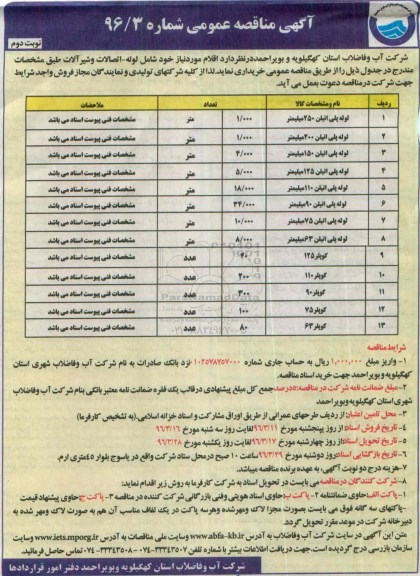 آگهی مناقصه عمومی شماره ۹۶/۳
نوبت دوم
شرکت آب وفاضلاب استان کهگیلویه و بویراحمددرنظردارد اقلام موردنیاز خود شامل لوله-اتصالات وشیرآلات طبق مشخصات
مندرج در جدول ذیل را از طریق مناقصه عمومی خریداری نماید.لذا از کلیه شرکتهای تولیدی و نمایندگان مجاز فروش واجد شرایط
جهت شرکت درمناقصه دعوت بعمل می آید.
ردیف نام ومشخصات کالا تعداد ملاحضات
۱ لوله پلی اتیلن ۲۵۰میلیمتر ۱/۰۰۰ متر مشخصات فنی پیوست اسناد می باشد
۲ لوله پلی اتیلن ۲۰۰میلیمتر ۱/۰۰۰ متر مشخصات فنی پیوست اسناد می باشد
۳ لوله پلی اتیلن ۱۵۰میلیمتر ۴/۰۰۰ متر مشخصات فنی پیوست اسناد می باشد
۴ لوله پلی اتیلن ۱۲۵میلیمتر ۵/۰۰۰ متر مشخصات فنی پیوست اسناد می باشد
۵ لوله پلی اتیلن ۱۱۰میلیمتر ۱۸/۰۰۰ متر مشخصات فنی پیوست اسناد می باشد
۶ لوله پلی اتیلن ۹۰میلیمتر ۳۴/۰۰۰ متر مشخصات فنی پیوست اسناد می باشد
۷ لوله پلی اتیلن ۷۵میلیمتر ۱۰/۰۰۰ متر مشخصات فنی پیوست اسناد می باشد
۸ لوله پلی اتیلن ۶۳میلیمتر ۸/۰۰۰ متر مشخصات فنی پیوست اسناد می باشد
۹ کوپلر۱۲۵ عدد مشخصات فنی پیوست اسناد می باشد
۱۰ کوپلر۱۱۰ ۲۰۰ عدد مشخصات فنی پیوست اسناد می باشد
۱۱ کوپلر۹۰ ۳۰۰ عدد مشخصات فنی پیوست اسناد می باشد
۱۲ کوپلر۷۵ ۱۰۰ عدد مشخصات فنی پیوست اسناد می باشد
۱۳ کوپلر۶۳ ۸۰ عدد مشخصات فنی پیوست اسناد می باشد
شرایط مناقصه
۱-واریز مبلغ ۱/۰۰۰/۰۰۰ ریال به حساب جاری شماره ۱۰۲۵۷۸۷۵۷۰۰۰ نزد بانک صادرات به نام شرکت آب وفاضلاب شهری استان
کهگیلویه و بویراحمد جهت خرید اسناد مناقصه.
۲-مبلغ ضمانت نامه شرکت در مناقصه:۵درصدجمع کل مبلغ پیشنهادی درقالب یک فقره ضمانت نامه معتبربانکی بنام شرکت آب وفاضلاب
شهری استان کهگیلویه وبویراحمد
۳- محل تامین اعتبار:از ردیف طرحهای عمرانی از طریق اوراق مشارکت و اسناد خزانه اسلامی.(به تشخیص کارفرما)
۴-تاریخ فروش اسناد:از روز پنجشنبه مورخ ۹۶/۳/۱۱لغایت روز سه شنبه مورخ ۹۶/۳/۱۶
۵-تاریخ تحویل اسناد:از روز چهارشنبه مورخ ۹۶/۳/۱۷لغایت روز یکشنبه مورخ ۹۶/۳/۲۸
۶-تاریخ بازگشایی اسناد:روز دوشنبه مورخ ۹۶/۳/۲۹ساعت ۱۰ صبح درمحل ستاد شرکت واقع در یاسوج بلوار ۴۵متری ارم.
۷-هزینه درج دو نوبت آگهی، به عهده برنده مناقصه میباشد.
۸-شرکت کنندگان در مناقصه می بایست در تحویل اسناد به شرکت کارفرما به روش زیر اقدام نماید:
۱-پاکت الف:حاوی ضمانتنامه ۲-پاکت ب:حاوی اسناد هویتی وفنی بازرگانی شرکت کننده در مناقصه ۳-پاکت ج:حاوی پیشنهاد قیمت
-پاکتهای سه گانه فوق می بایست بصورت مجزا لاک ومهرشده وهرسه پاکت در یک لفاف مناسب آن هم به صورت لاک ومهر شده به
دبیرخانه شرکت در موعد مقرر تحویل گردد.
متن این آگهی در سایت شرکت آب وفاضلاب به آدرس www.abfa-kb.ir وسایت ملی مناقصات به آدرس www.iets.mporg.ir وسایت
سازمان بازرسی درج گردیده است.جهت دریافت اطلاعات بیشتر با شماره تلفن ۳۳۳۴۳۵۰۷-۰۷۴ و ۳۳۳۴۳۵۰۸-۰۷۴ تماس حاصل فرمائید.
شرکت آب وفاضلاب استان کهگیلویه وبویراحمد دفتر امور قراردادها